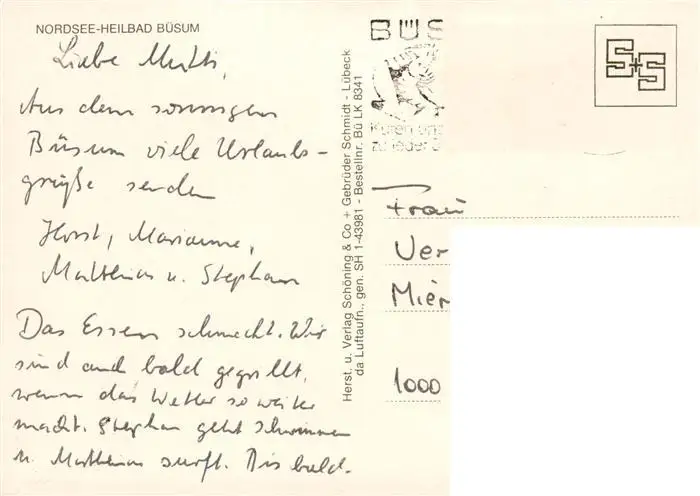 NORDSEE-HEILBAD BÜSUM
Liebe Mutti,
Aus dem sonnigen
Büsum viele Urlaubs-
grüße senden
Horst, Marianne,
Matthias u. Stephan
Das Essen schmeckt. Wir
sind auch bald gegrillt,
wenn das Wetter so weiter
macht. Stephan geht schwimmen
u. Matthias surft. Bis bald.
Herst. u. Verlag Schöning & Co + Gebrüder Schmidt - Lübeck
da Luftaufn.. gen. SH 1-43981 - Bestellnr. Bü LK 8341
BÜS
Kuren und
zu jeder
S+S
Frau
Ver
Mier
1000